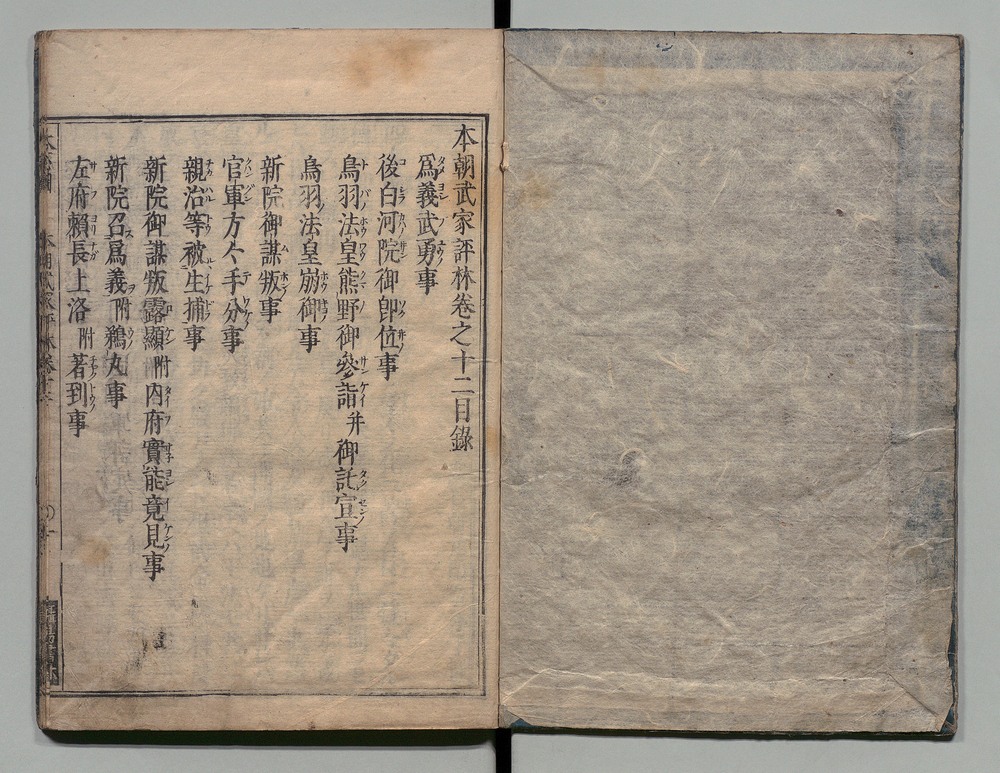 本朝武家評林卷之十二目錄
爲義武勇事
後白河院御卽位事
鳥羽法皇熊野御參詣并御託宣事
鳥羽法皇崩御事
新院御謀叛事
官軍方々手分事
親治等被生捕事
新院御謀叛露顯附內府實能竟見事
新院召爲義附鵜丸事
左府賴長上洛附著到事